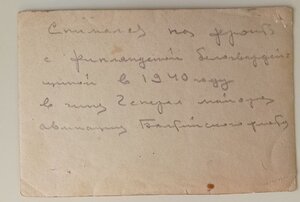 Снимался на фронте
с финляндской белогвардей-
щиной в 1940 году
в чине генерал майора
авиации Балтийского флота